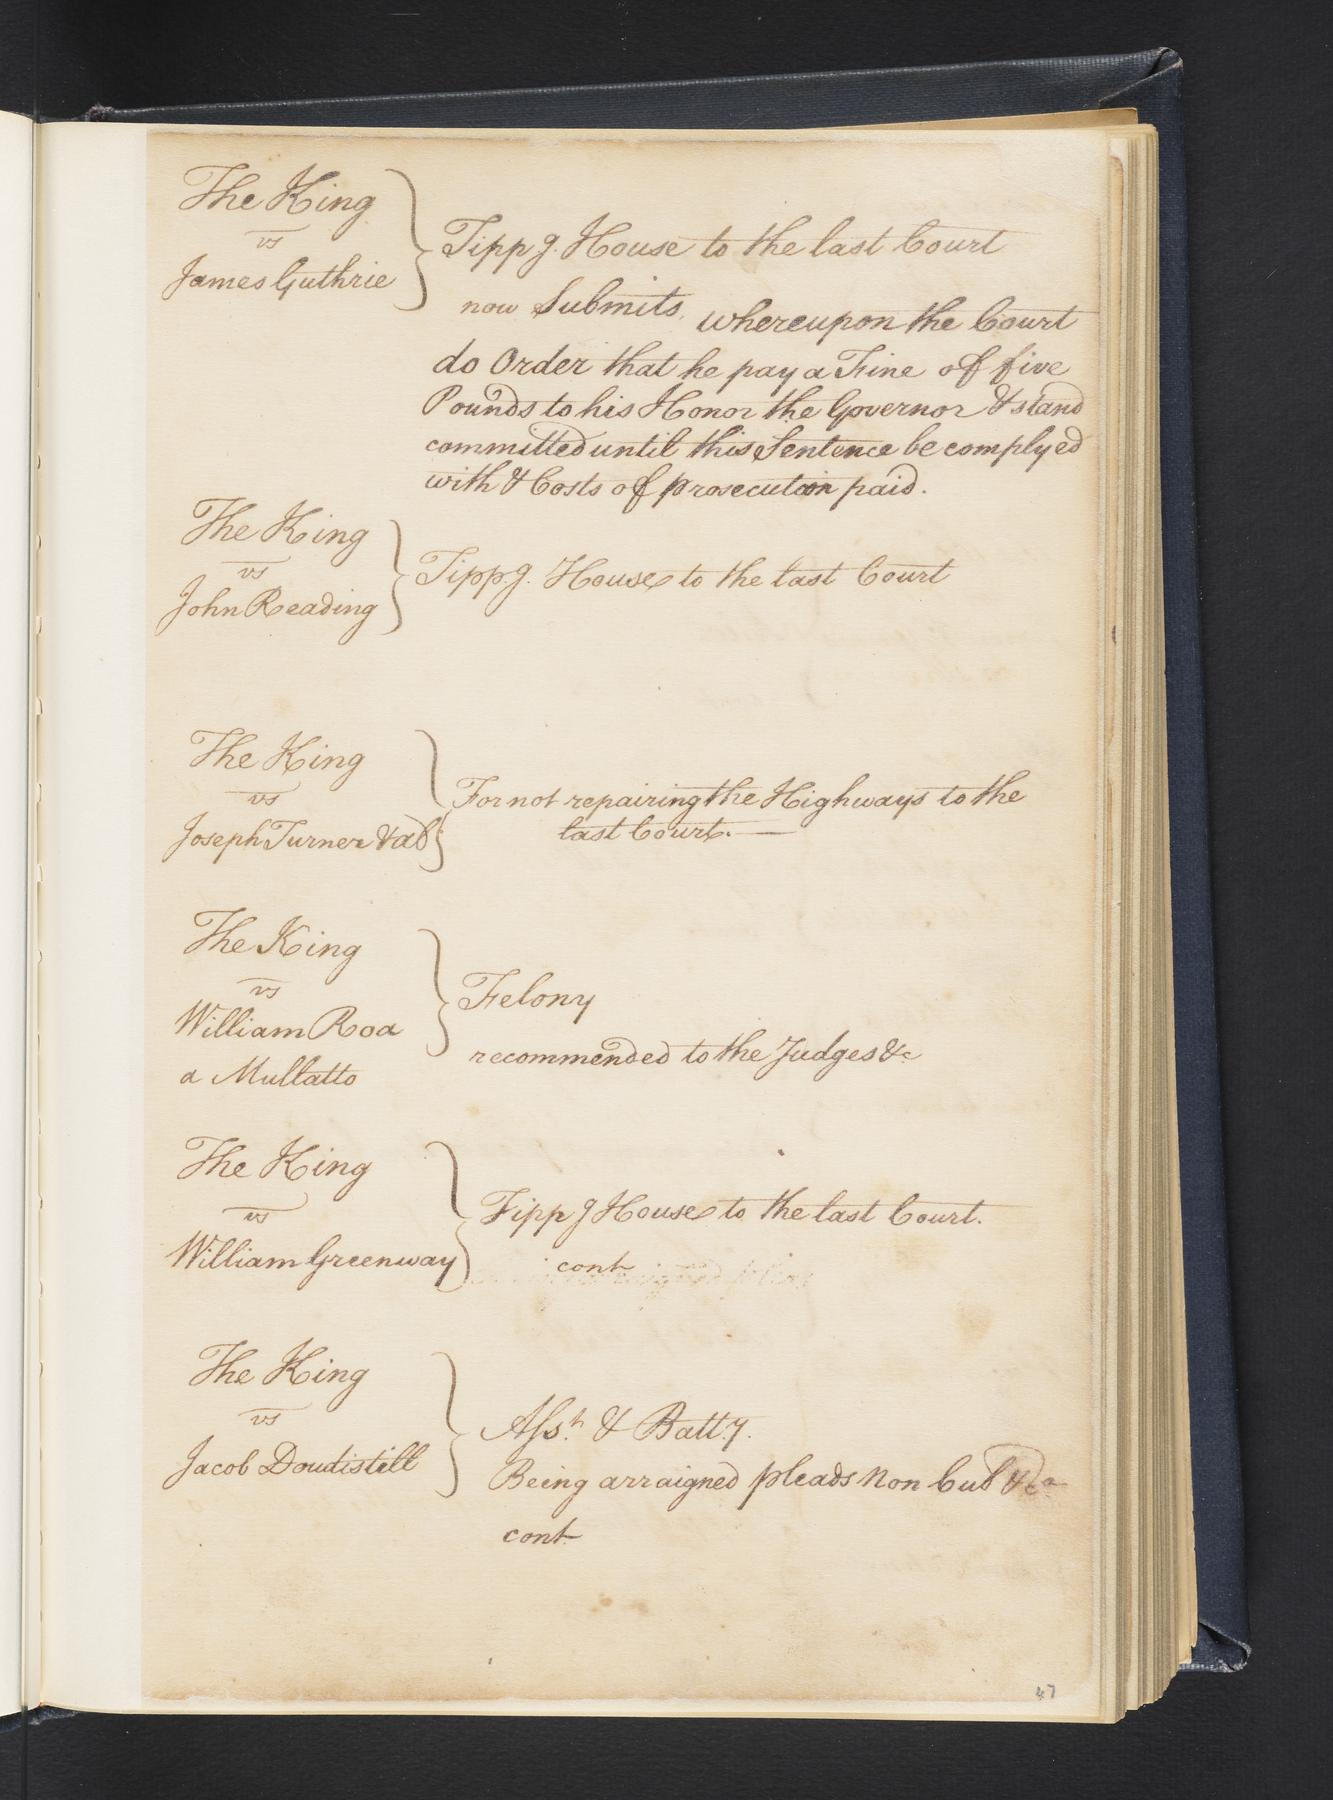 The King
vs
James Guthrie
Tipp g. House to the last Court
now Submits, whereupon the Court
do Order that he pay a Fine of five
Pounds to his Honor the Governor & stand
committed until this Sentence be complyed
with & Costs of prosecution paid.
The King
vs
John Reading
Tipp.g. House to the last Court
The King
vs
Joseph Turner & al
For not repairing the Highways to the
last Court.
The King
vs
William Roa
a Mullatto
Felony
recommended to the Judges &c
The King
vs
William Greenway
Tipp g House to the last Court.
cont
The King
vs
Jacob Doudistill
Asst. & Batt.y.
Being arraigned pleads Non Cul &ca
cont
47